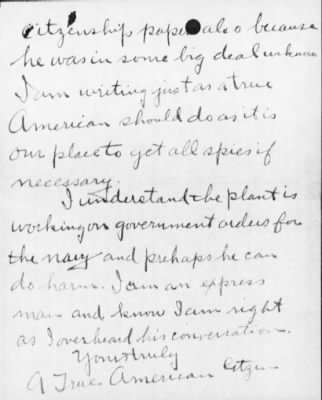 citizenship paper also because
he was in some big deal unknown
I am writing just as a true
American should do as it is
our place to get all spies if
necessary.
I understand the plant is
working on government orders for
the navy and prehaps he can
do harm. I am an express
man and know I am right
as I overheard his conversation.
Yours truly
A True American Citizen